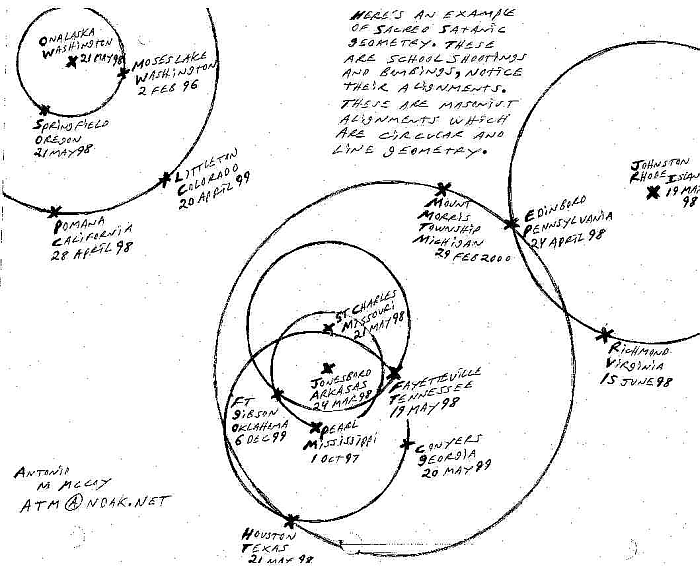 HERE'S AN EXAMPLE
OF SACRED SATANIC
GEOMETRY. THESE
ARE SCHOOL SHOOTINGS
AND BOMBINGS, NOTICE
THEIR ALIGNMENTS.
THESE ARE MASONIST
ALIGNMENTS WHICH
ARE CIRCULAR AND
LINE GEOMETRY.
ONALASKA
WASHINGTON
21 MAY 98
MOSES LAKE
WASHINGTON
2 FEB 96
SPRINGFIELD
OREGON
21 MAY 98
LITTLETON
COLORADO
20 APRIL 99
POMANA
CALIFORNIA
28 APRIL 98
JOHNSTON
RHODE ISLAN
19 MA
98
MOUNT
MORRIS
TOWNSHIP
MICHIGAN
29 FEB 2000
EDINBORO
PENNSYLVANIA
24 APRIL 98
RICHMOND
VIRGINIA
15 JUNE 98
ST. CHARLES
MISSOURI
21 MAY 98
JONESBORO
ARKASAS
24 MAR 98
FAYETTEVILLE
TENNESSEE
19 MAY 98
FT
GIBSON
OKLAHOMA
6 DEC 99
PEARL
MISSISSIPPI
1 OCT 97
CONYERS
GEORGIA
20 MAY 99
HOUSTON
TEXAS
21 MAY 98
ANTONIO
M MCCOY
ATM@NDAK.NET